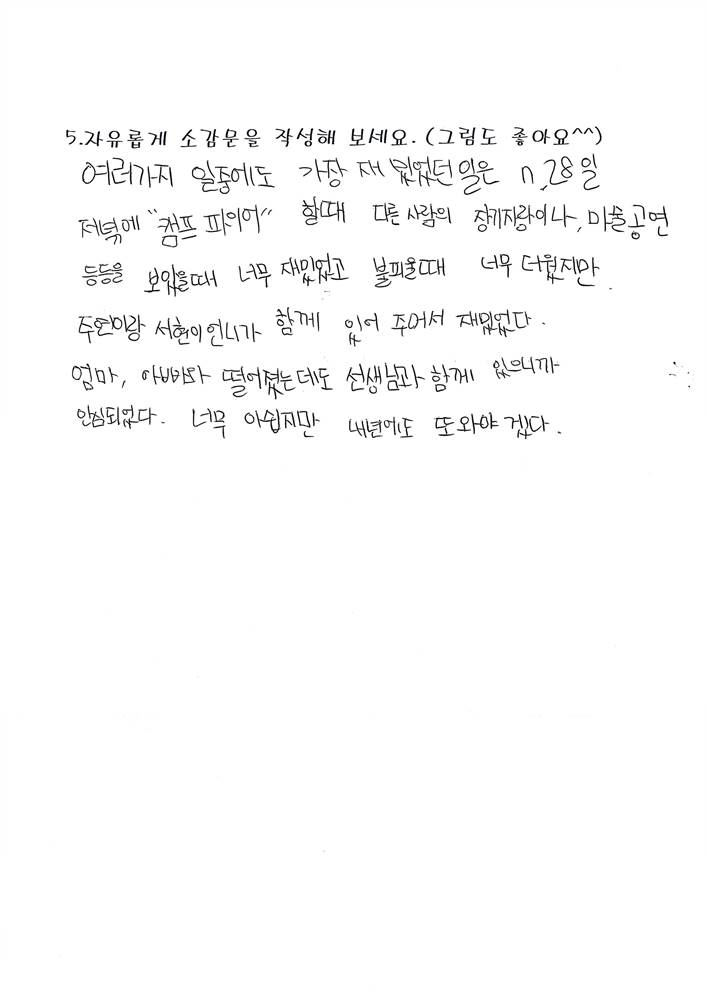 5.자유롭게 소감문을 작성해 보세요.(그림도 좋아요^^)
여러가지 일중에도 가장 재밌었던일은 n.28일
저녁에 "캠프 파이어" 할때 다른 사람의 장기자랑이나, 마술공연
등등을 보았을때 너무 재밌었고 불피울때 너무 더웠지만
주연이랑 서현이언니가 함께 있어 주어서 재밌었다.
엄마, 아빠와 떨어졌는데도 선생님과 함께 있으니까
안심되었다. 너무 아쉽지만 내년에도 또와야겠다.